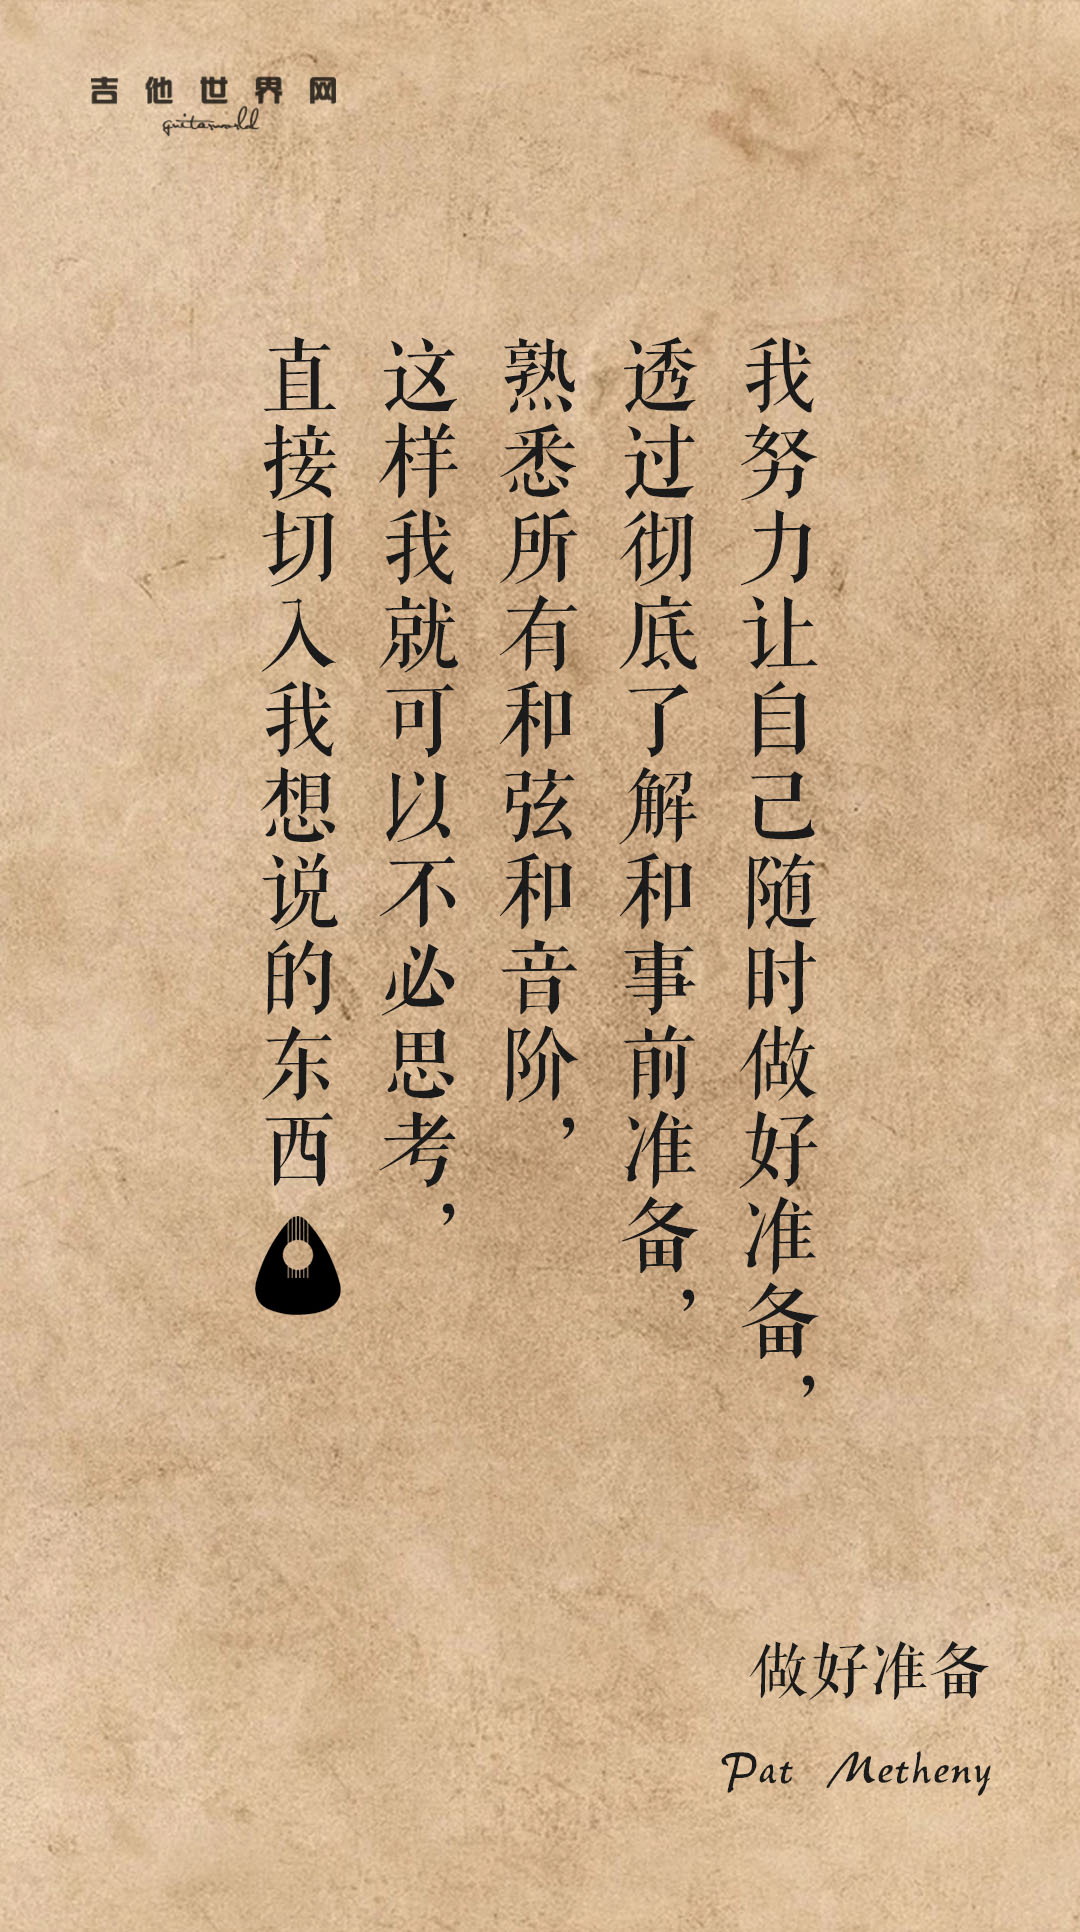 吉他世界网
guitarworld
我努力让自己随时做好准备，
透过彻底了解和事前准备，
熟悉所有和弦和音阶，
这样我就可以不必思考，
直接切入我想说的东西
做好准备
Pat Metheny